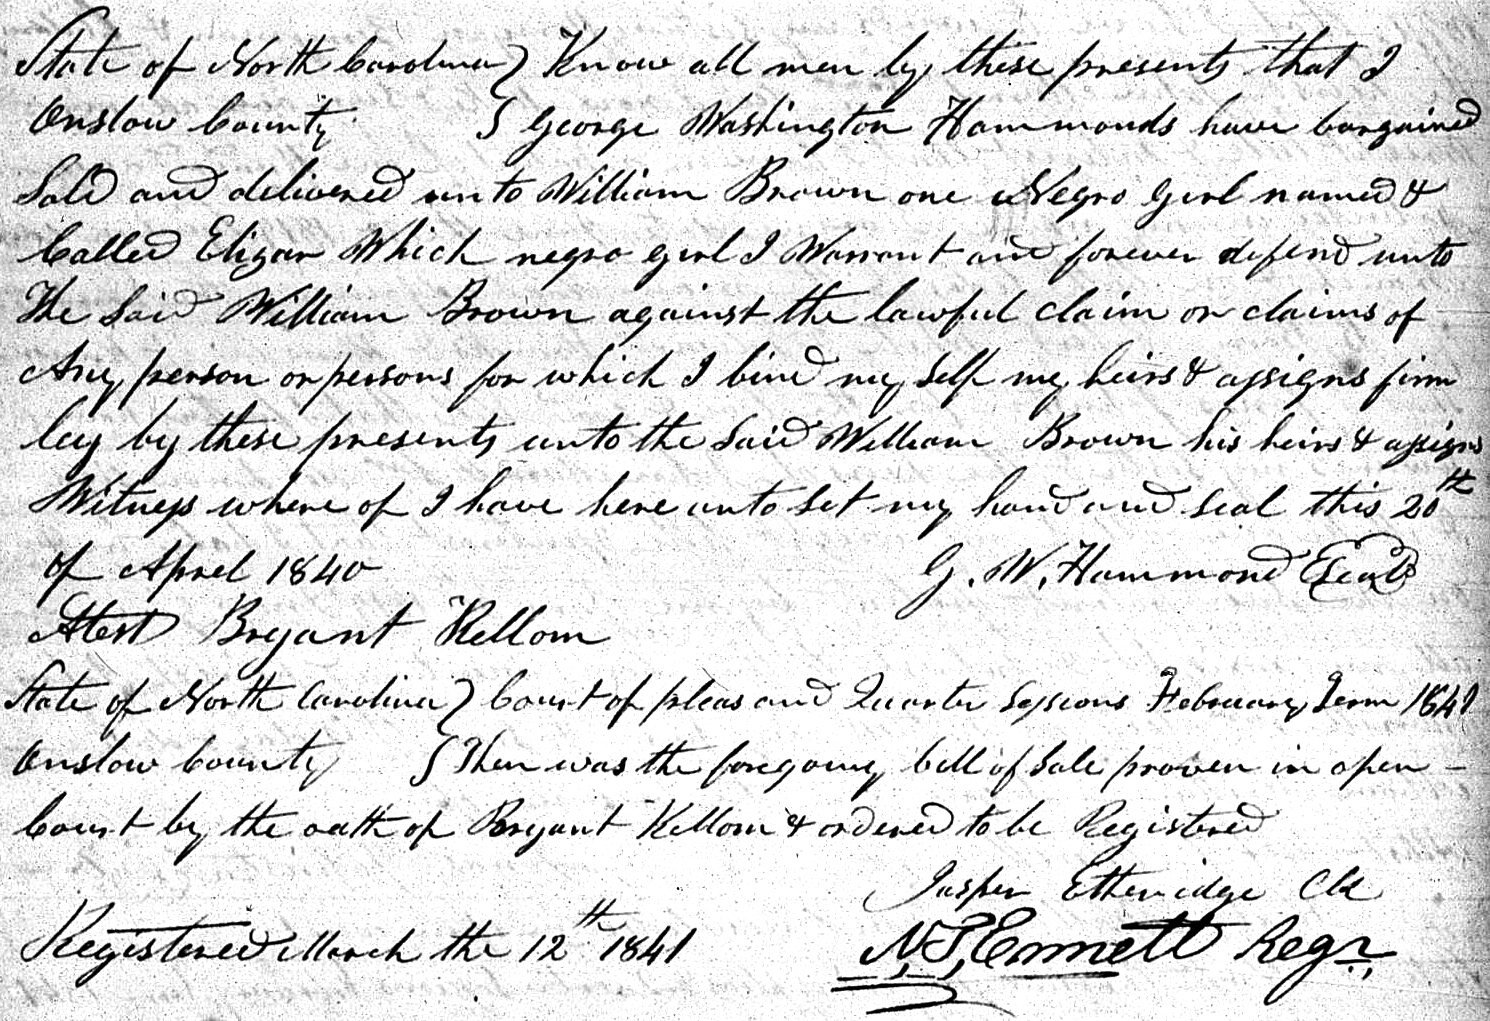 State of North Carolina } Know all men by these presents that I
Onslow County } George Washington Hammonds have bargained
Sold and delivered unto William Brown one Negro Girl named &
Called Elizar Which negro girl I Warrant and forever defend unto
The Said William Brown against the lawful claim or claims of
Any person or persons for which I bind my Self my heirs & assigns firm
ley by these presents unto the Said William Brown his heirs & assigns
Witness where of I have here unto Set my hand and seal this 20th
of Aprel 1840 G. W. Hammond Seal
Atest Bryant Kellom
State of North Carolina } Court of pleas and Quarter Sessions February Term 1841
Onslow County } Then was the foregoing bill of Sale proven in open -
Court by the oath of Bryant Kellom & ordered to be Registered
Jasper Etheridge Clk
Registered March the 12th 1841 N. S. Ennett Regr